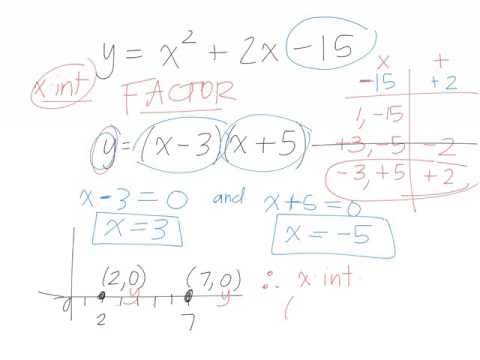 y = x² + 2x - 15
x·int FACTOR
x +
-15 +2
1, -15
+3, -5 -2
-3, +5 +2
y = (x - 3)(x + 5)
x - 3 = 0 and x + 5 = 0
x = 3 x = -5
(2,0) (7,0)
y y
0 2 7
∴ x·int
(